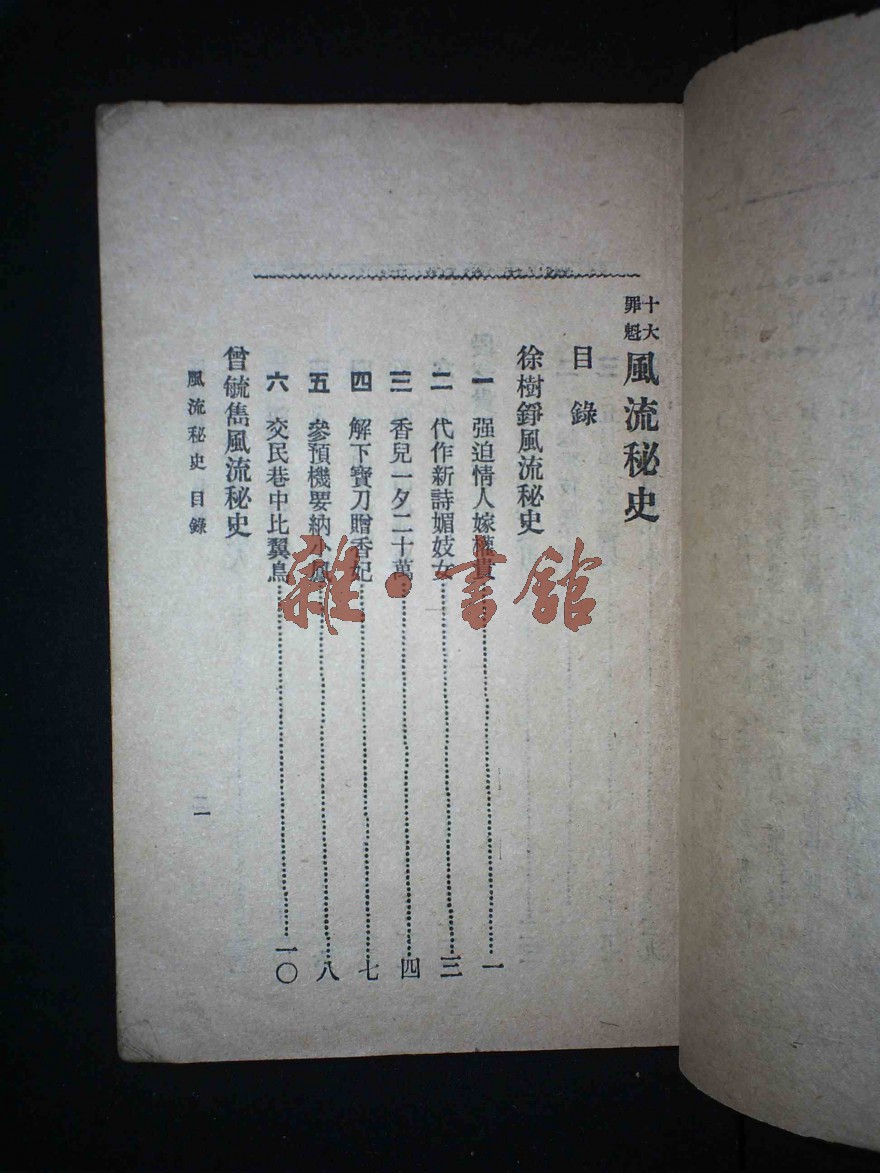 十大罪魁 風流秘史
目錄
徐樹錚風流秘史
一 强迫情人嫁權貴……一
二 代作新詩媚妓女……三
三 香兒一夕二十萬……四
四 解下寶刀贈香妃……七
五 參預機要納小鳳……八
六 交民巷中比翼鳥……一〇
曾毓雋風流秘史
風流秘史 目錄
一
雜·書館